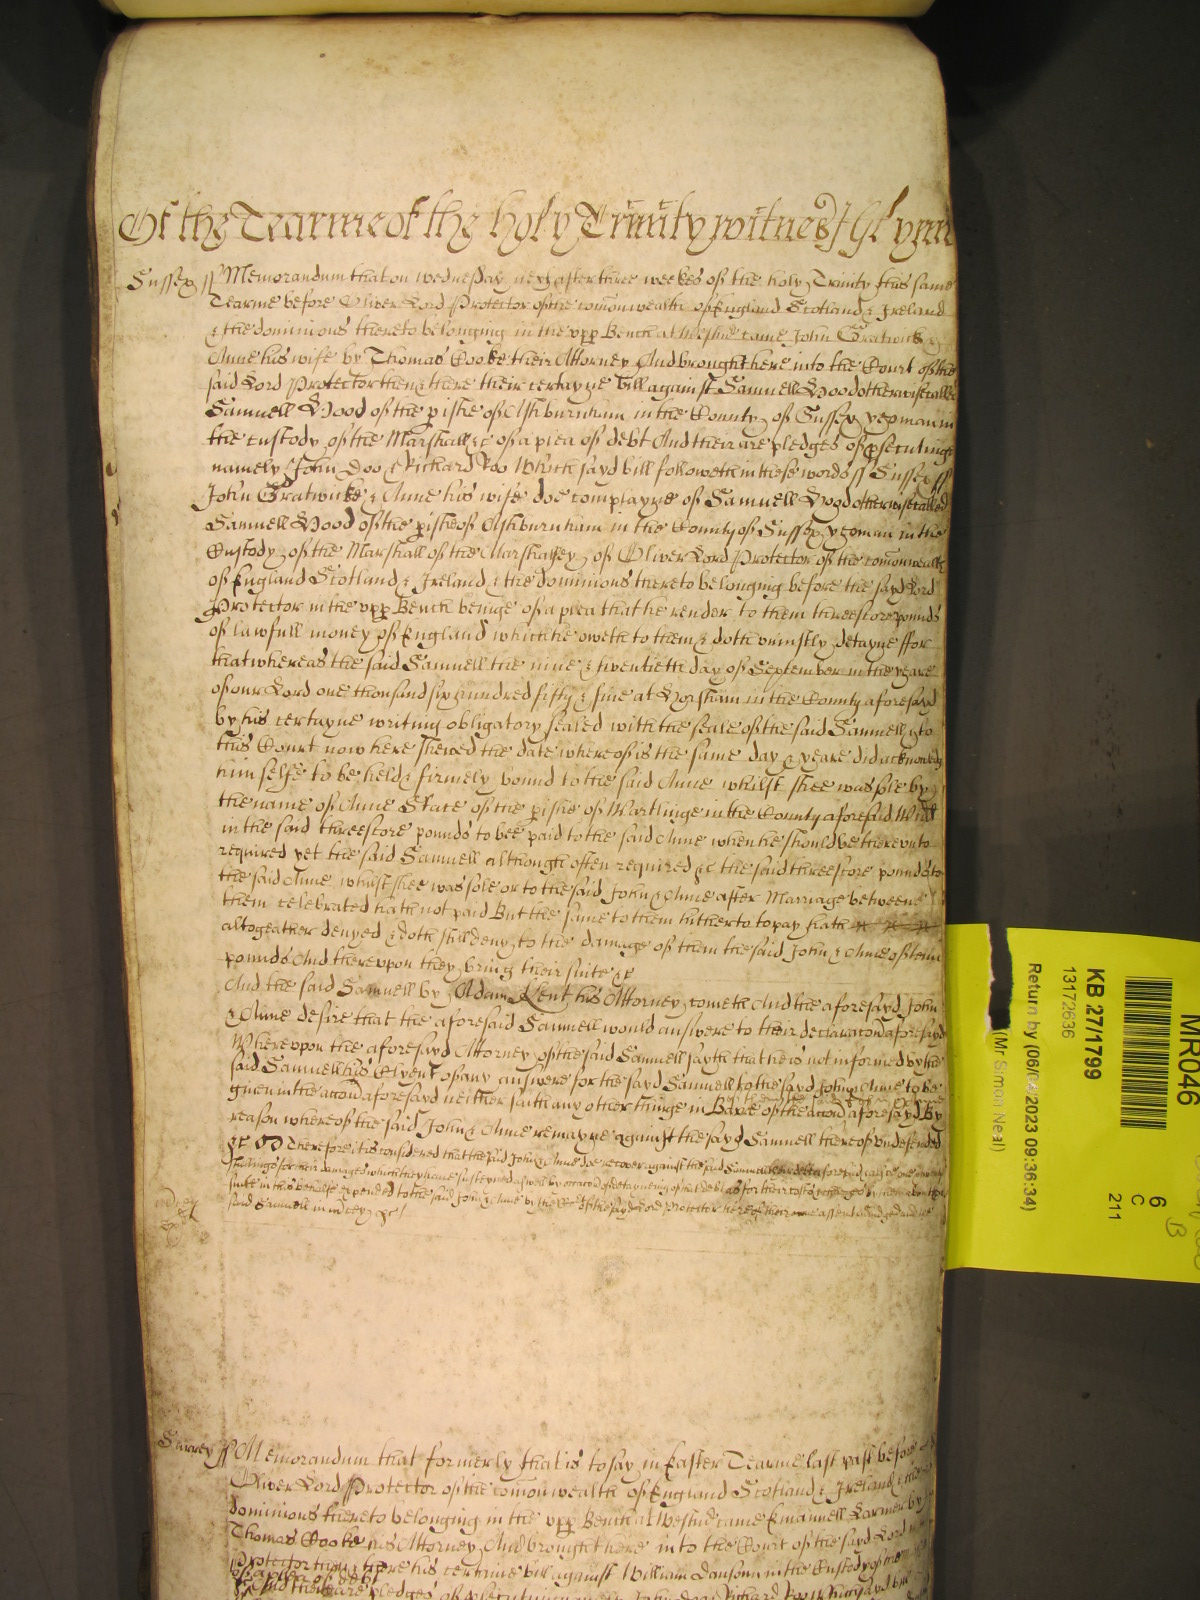 Of the Tearme of the holy Trinity witnes J Glynn
Sussex ss Memorandum that on wednesday next after three weekes of the holy Trinity this same
Tearme before Oliver Lord Protector of the comonwealth of England Scotland & Ireland
& the dominions thereto belonging in the upp Bench at Westmr came John Gratwicke &
Anne his wife by Thomas Rooke their Attorney And brought here into the Court of the
said Lord Protector then & there their certayne bill against Samuell Hood otherwise called
Samuell Hood of the pishe of Ashburnham in the County of Sussex yeoman in
the custody of the Marshall &c of a plea of debt And there are pledges of psecuting
namely John Doo & Richard Roo Which sayd bill followeth in these words ss Sussex ss
John Gratwicke & Anne his wife doe complayne of Samuell Hood otherwise called
Samuell Hood of the pishe of Ashburnham in the County of Sussex yeoman in the
Custody of the Marshall of the Marshalsey of Oliver Lord Protector of the comonwealth
of England Scotland & Ireland & the dominions thereto belonging before the sayd Lord
Protector in the upp Bench beinge of a plea that he render to them threescore pounds
of lawfull money of England which he oweth to them & doth uniustly detayne ffor
that whereas the said Samuell the nine & twentieth day of September in the yeare
of our Lord one thousand six hundred fifty & five at Horsham in the County aforesayd
by his certayne writing obligatory sealed with the seale of the said Samuell & to
this Court now here shewed the date whereof is the same day & yeare did acknowledg
himselfe to be held & firmely bound to the said Anne whilst shee was sole by
the name of Anne of the pishe of in the County aforesaid
in the said threescore pounds to bee paid to the said Anne when he should be thereunto
required yet the said Samuell although often required &c the said threescore pounds to
the said Anne whilst shee was sole or to the said John & Anne after Marriage betweene
them celebrated hath not paid But the same to them hitherto to pay hath
altogeather denyed & doth still deny to the damage of them the said John & Anne of tenn
pounds And thereupon they bring their suite &c
And the said Samuell by Adam Kent his Attorney cometh And the aforesayd John
& Anne desire that the aforesaid Samuell would answere to their declaracon aforesayd
Whereupon the aforesayd Attorney of the said Samuell sayth that he is not informed by the
said Samuell his Clyent of any answere for the sayd Samuell to the sayd John & Anne to be
given in the accon aforesayd neither saith any other thinge in Barre of the accon aforesayd By
reason whereof the said John & Anne remayne against the sayd Samuell thereof undefended
&c Therefore it is considered that the said John & Anne doe recover against the said Samuell their debt aforesaid
shillings for their damages which they have susteyned aswell by occasion of detayneing of that debt as for their costs & charges by them about their
suite in this behalfe expended to the said John & Anne by the Court of the sayd Lord Protector here of their owne assent adiudged And the
said Samuell in mercy &c
Surrey ss Memorandum that formerly that is to say in Easter Tearme last past before
Oliver Lord Protector of the comonwealth of England Scotland & Ireland & the
dominions thereto belonging in the upp Bench at Westmr came Emanuell by
Thomas Rooke his Attorney And brought here into the Court of the sayd Lord
Protector then & there his certaine bill against William in the Custody of the
of a plea of debt
And there are pledges of psecuting namely John Doo & Richard Roo Which sayd bill
MR046
KB 27/1799
13172636
Return by (06/04/2023 09:36:34)
(Mr Simon Neal)
6
C
211
B